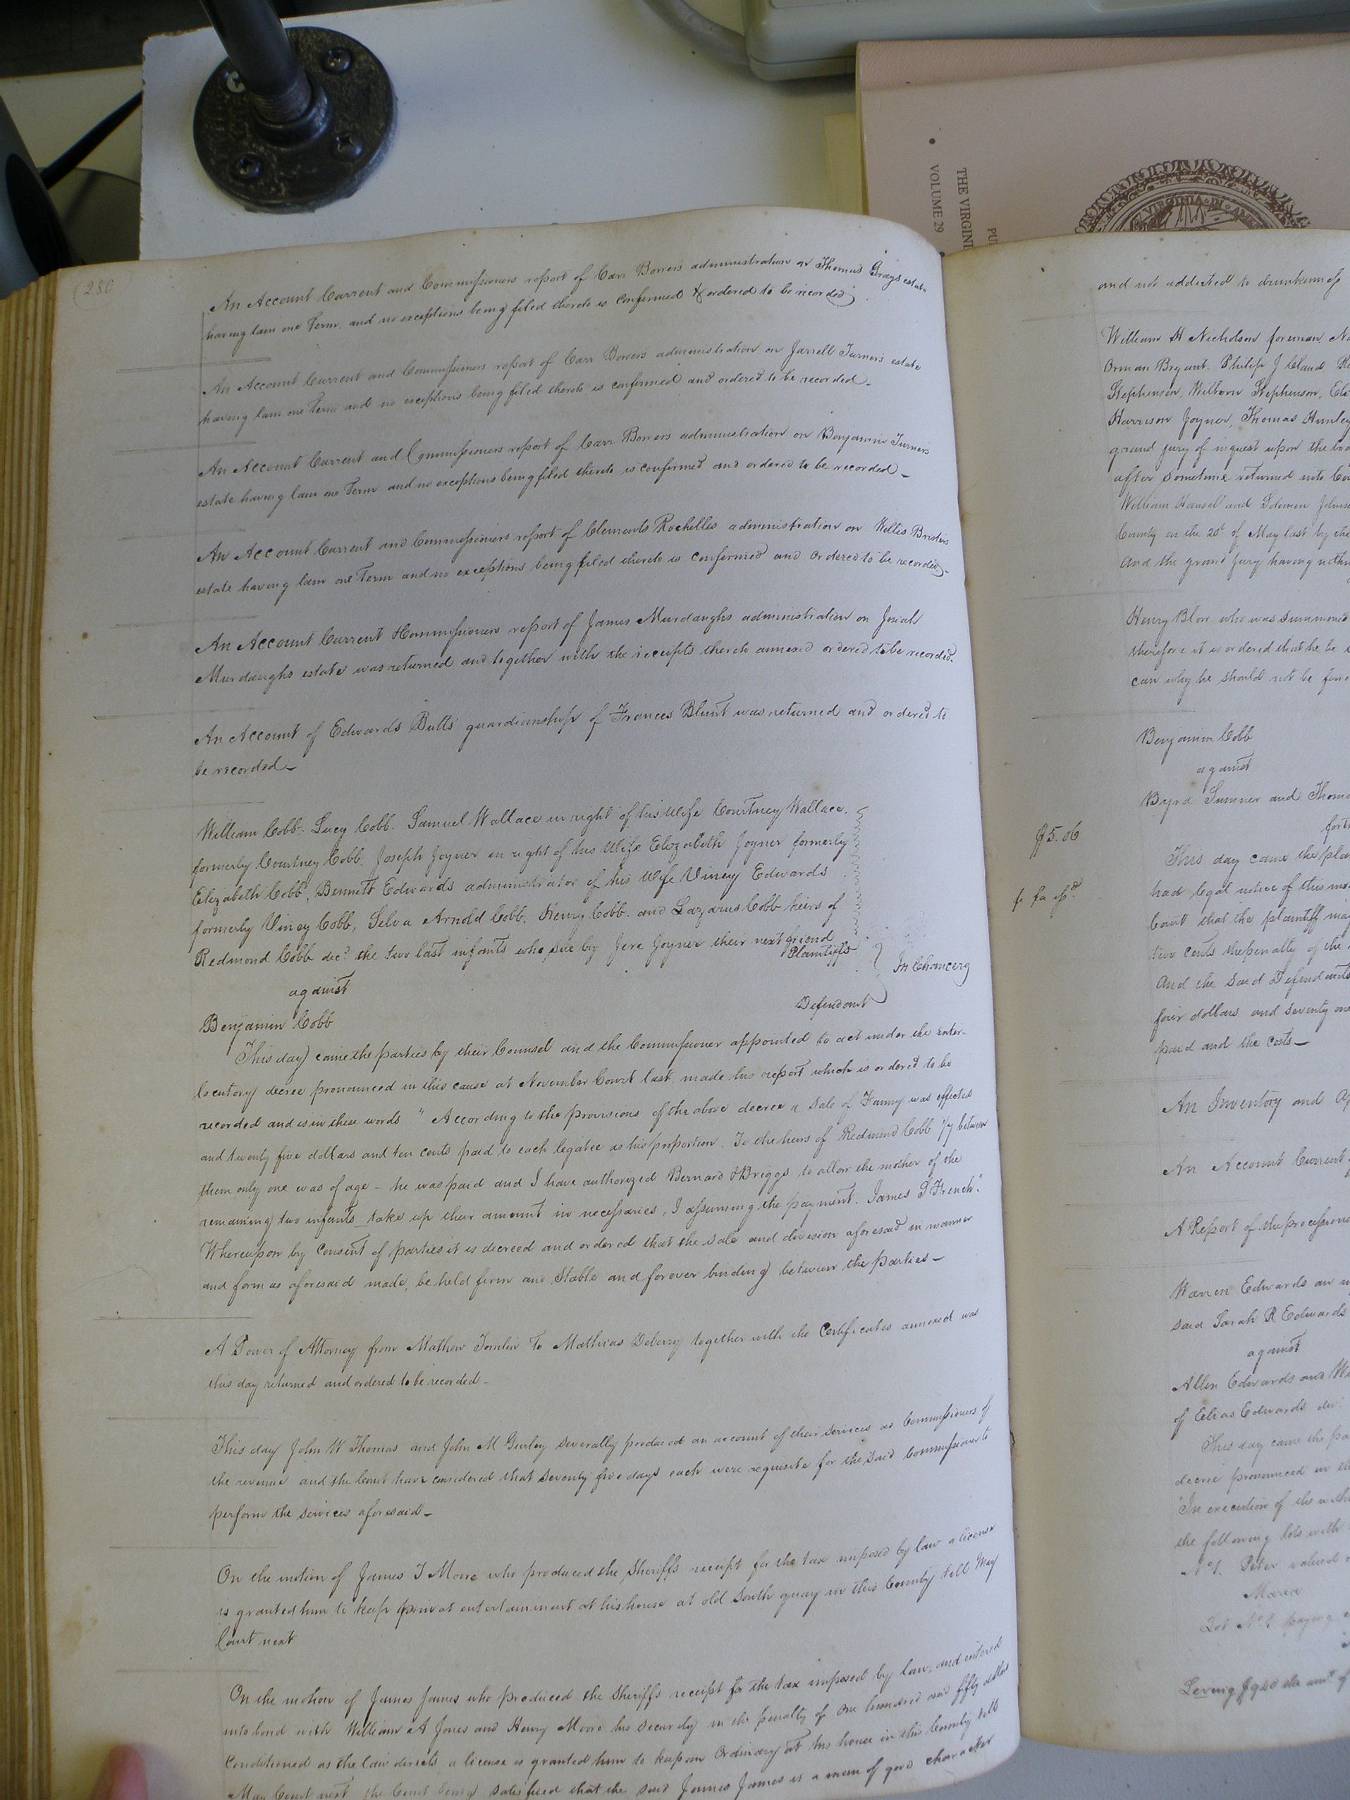 (280
An Account Current and Commissioners report of Carr Bowers administration on Thomas Grays estate
having lain one Term and no exceptions being filed thereto is confirmed & ordered to be recorded
An Account Current and Commissioners report of Carr Bowers administration on Jarrell Turners estate
having lain one Term and no exceptions being filed thereto is confirmed and ordered to be recorded_
An Account Current and Commissioners report of Carr Bowers administration on Benjamin Turners
estate having lain one Term and no exceptions being filed thereto is confirmed and ordered to be recorded_
An Account Current and Commissioners report of Clements Rochelles administration on Willis
estate having lain one Term and no exceptions being filed thereto is confirmed and ordered to be recorded_
An Account Current & Commissioners report of James Murdaughs administration on Josiah
Murdaughs estate was returned and together with the receipts thereto annexed ordered to be recorded.
An Account of Edwards Butts guardianship of Frances Blunt was returned and ordered to
be recorded_
William Cobb. Lucy Cobb. Samuel Wallace in right of his wife Courtney Wallace.
formerly Courtney Cobb, Joseph Joyner in right of his wife Elizabeth Joyner formerly
Elizabeth Cobb, Bennett Edwards administrator of his wife Viney Edwards
formerly Viney Cobb, Selva Arnold Cobb, Henry Cobb. and Lazarus Cobb heirs of
Redmond Cobb decd. the two last infants who sue by Jere Joyner their next friend
Plaintiffs
against
In Chancery
Benjamin Cobb Defendant
This day came the parties by their Counsel and the Commissioner appointed to act under the inter-
locutory decree pronounced in this cause at November Court last, made his report which is ordered to be
recorded and is in these words " According to the provisions of the above decree a sale of Fanny was effected
and twenty five dollars and ten cents paid to each legatee as his proportion. To the heirs of Redmond Cobb 1/7 between
them only one was of age – he was paid and I have authorized Bernard H Briggs to allow the mother of the
remaining two infants take up their amount in necessaries, I assuming the payment. James S French".
Whereupon by consent of parties it is decreed and ordered that the sale and division aforesaid in manner
and form as aforesaid made, be held firm and stable and forever binding between the parties_
A Power of Attorney from Mathew Tomlin To Mathias Deberry together with the Certificates annexed was
this day returned and ordered to be recorded_
This day John W Thomas and John M Gurley severally produced an account of their services as Commissioners of
the revenue and the Court have considered that seventy five days each were requisite for the said Commissioners to
perform the services aforesaid_
On the motion of James T Moore who produced the Sheriffs receipt for the tax imposed by law a license
is granted him to keep private entertainment at his house at old South quay in this County till May
Court next
On the motion of James James who produced the Sheriffs receipt for the tax imposed by law, and entered
into bond with William A Jones and Henry Moore his security in the penalty of one hundred and fifty dollars
Conditioned as the law directs, a license is granted him to keep an Ordinary at his house in this County till
May Court next, the Court being satisfied that the said James James is a man of good character
THE VIRGINI
VOLUME 29
PU
VIRGINIA IN AME
and not addicted to drunkenness
William H Nicholson foreman
Orman Bryant. Philip J Claud
Stephenson, Wilborn Stephenson,
Harrison Joyner, Thomas Hunley
grand jury of inquest upon the bo
after sometime returned into Co
William Hansel and Solomon Johns
County on the 20th of May last by the
And the grand jury having noth
Henry Blow who was summoned
therefore it is ordered that he be
can why he should not be fine
Benjamin Cobb
against
Bayrd Sumner and Thoma
$5.06
This day came the plai
fi fa ipd
had legal notice of this mo
Court that the plaintiff ma
two cents the penalty of the
And the said Defendants
four dollars and seventy one
paid and the costs_
An Inventory and Ap
An Account Current
A Report of the processione
Warren Edwards an
said Sarah R Edwards
against
Allen Edwards and W
of Elias Edwards decd.
This day came the pa
decree pronounced in th
"In execution of the with
the following lots with
No 1. Peter valued
Maria
Lot No 1 paying
Leving $940 the amt of